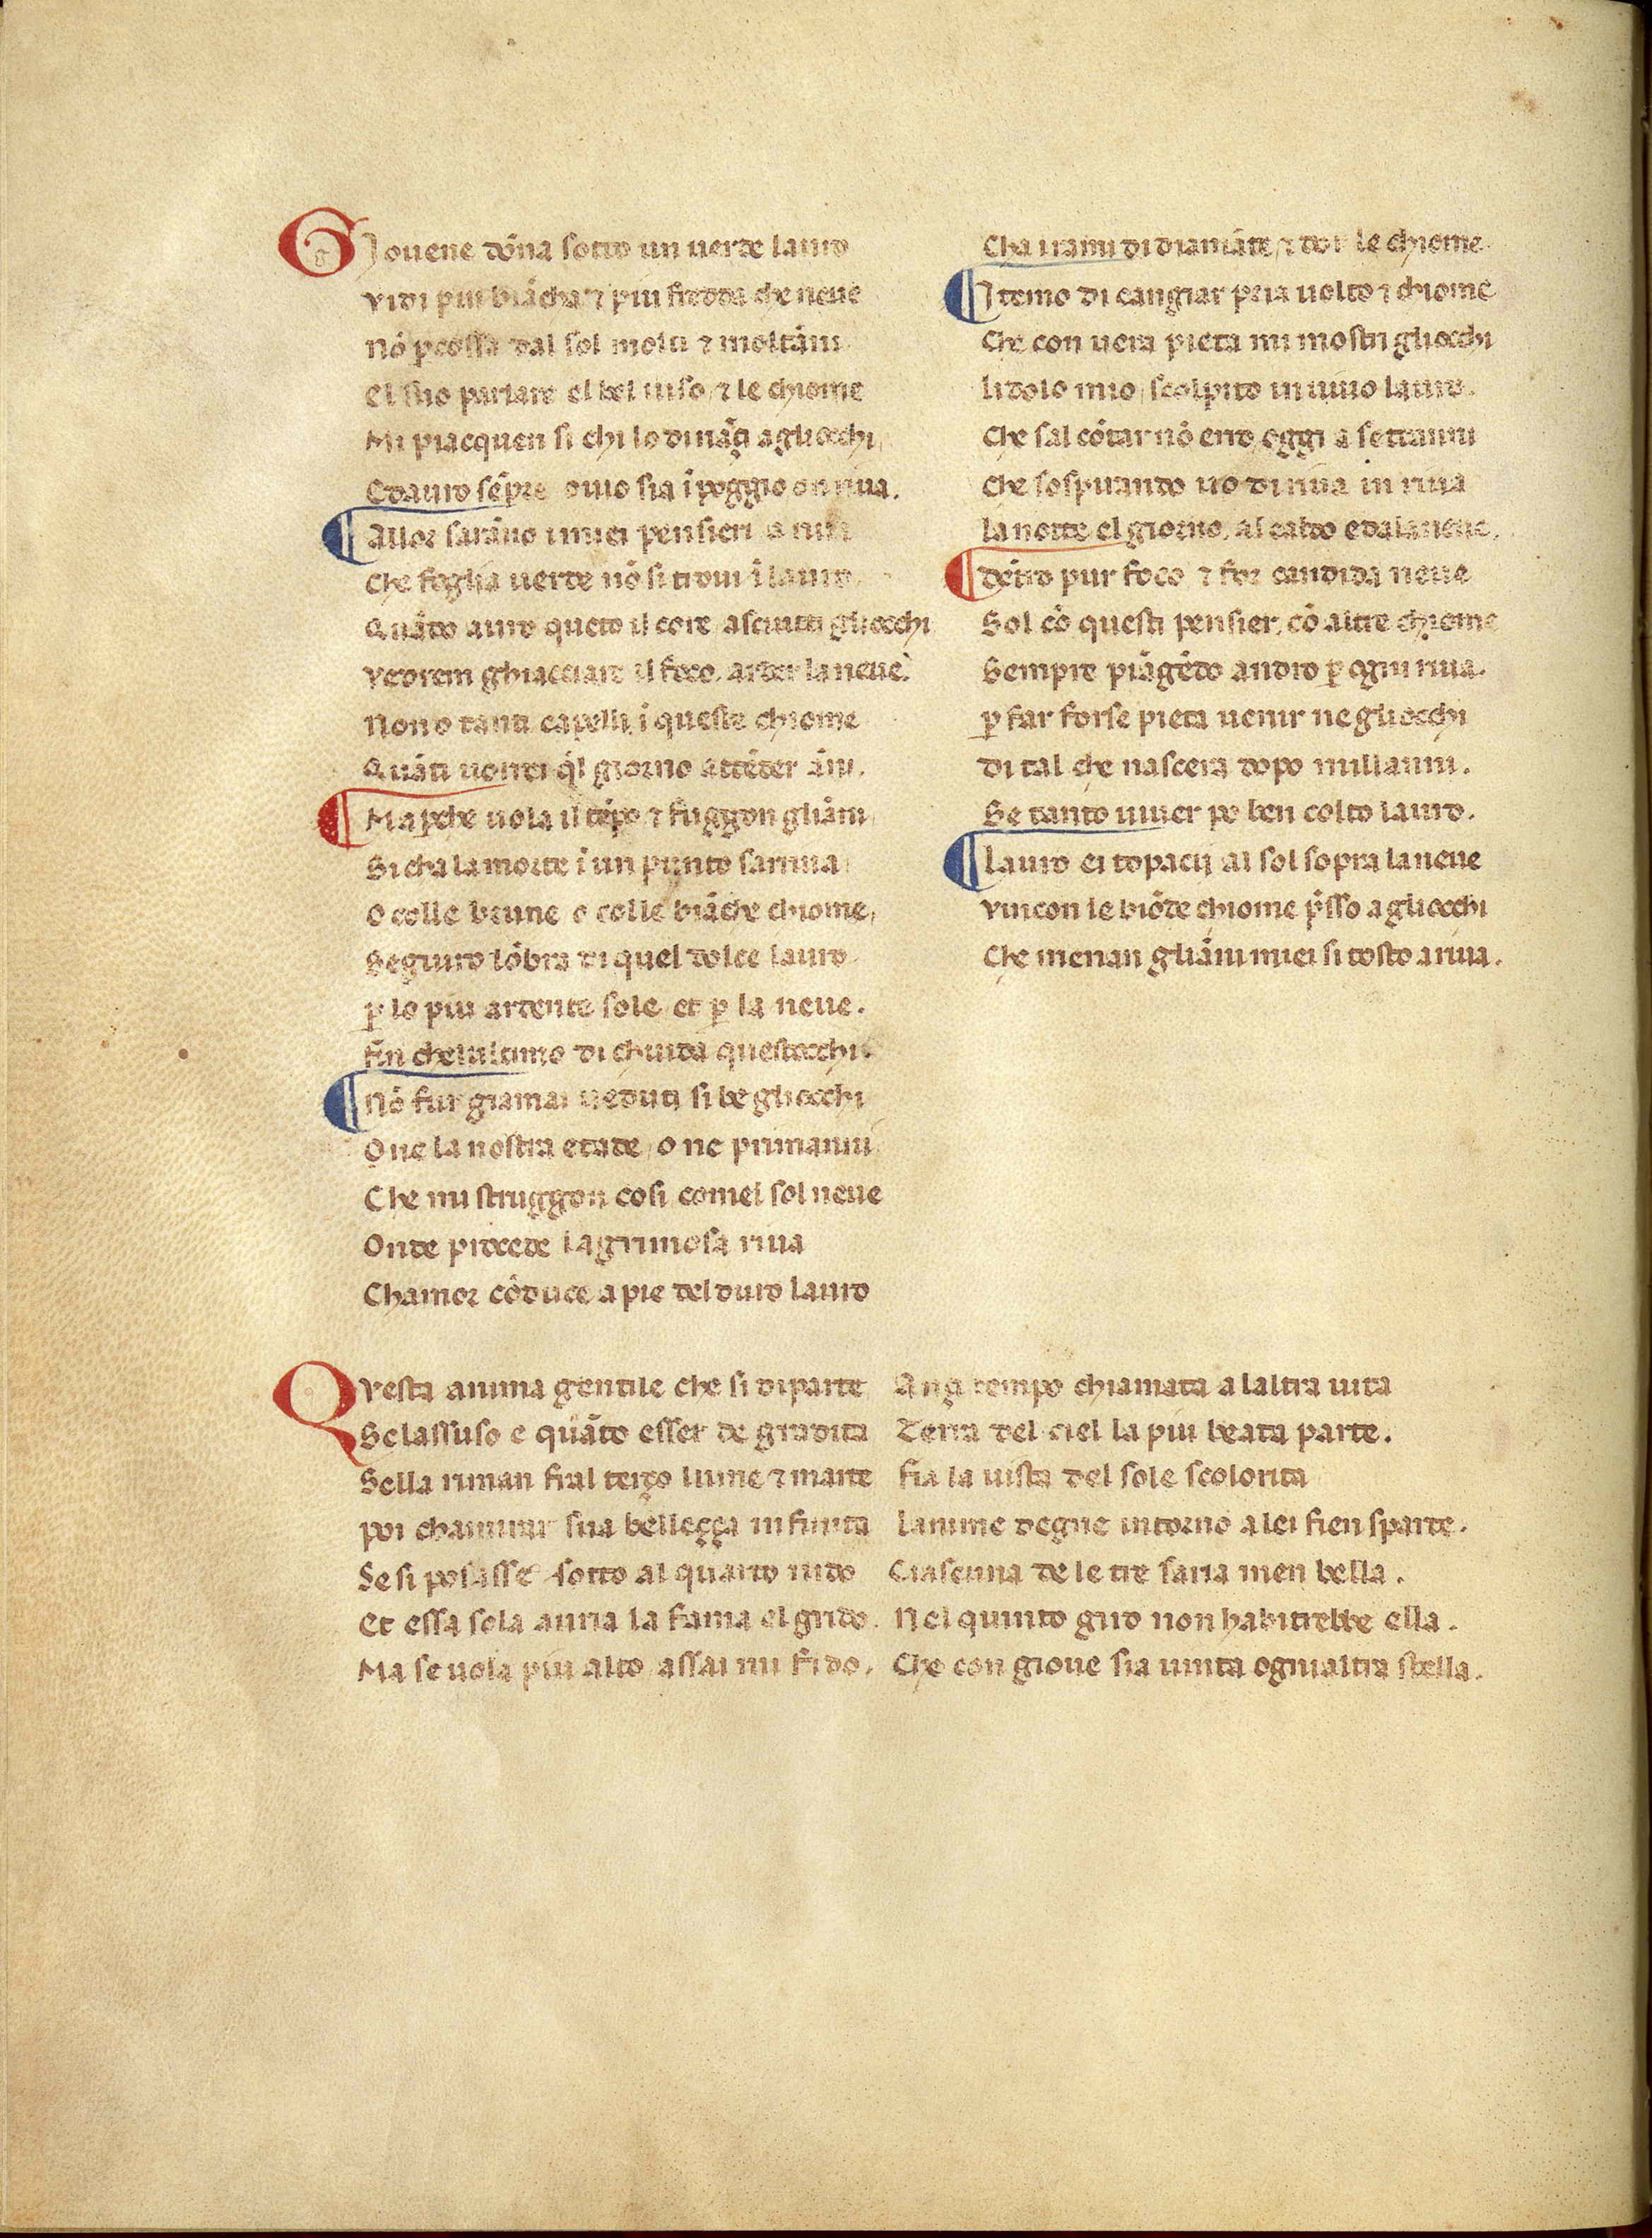 GIouene dōna sotto un uerde lauro
vidi piu biācha ⁊ piu fredda che neue
nō ꝑcossa dal sol molti ⁊ moltāni
el suo parlare el bel uiso, ⁊ le chiome
Mi piacquen si chi lo dināçi agliocchi,
Edauro sēpre ouio sia ī poggio on riua.
Allor sarāno i miei pensieri a riua
Che foglia uerde nō si troui ī lauro
Quādo auro queto il core asciutti gliocchi
vedrem ghiacciare il foco, arder la neue.
Non o tanti capelli, ī queste chiome
Quāti uorrei ql giorno attēder āni.
Ma ꝑche uola il tēpo ⁊ fuggon gliāni
Si cha la morte ī un punto sarriua
O colle brune o colle biāche chiome,
Seguiro lōbra di quel dolce lauro
ꝑ lo piu ardente sole et ꝑ la neue.
fin che lultimo di chiuda questocchi.
nō fur giamai ueduti si be gliocchi
O ne la nostra etade, o ne primanni
Che mi struggon cosi comel sol neue
Onde procede lagrimosa riua
Chamor cōduce a pie del duro lauro
Cha i rami di diamāte, ⁊ dor le chiome.
I temo di cangiar pria uolto ⁊ chiome
Che con uera pieta mi mostri gliocchi
lidolo mio, scolpito in uiuo lauro.
Che sal cōtar nō erro, oggi a settanni
Che sospirando uo di riua in riua
la notte el giorno, al caldo eda la neue.
dētro pur foco ⁊ for candida neue
Sol cō questi pensier, cō altre chiome
Sempre piāgēdo andro ꝑ ogni riua.
ꝑ far forse pieta uenir ne gliocchi
di tal che nascera dopo millanni.
Se tanto uiuer po ben colto lauro.
Lauro ei topacij al sol sopra la neue
vincon le biōde chiome p̄sso agliocchi
Che menan gliāni miei si tosto a riua.
QVesta anima gentile che si diparte Ançi tempo chiamata a laltra uita
Se lassuso e quāto esser de gradita Terra del ciel la piu beata parte.
Sella riman fral terço lume ⁊ marte fia la uista del sole scolorita
poi chammirar sua belleçça infinita lanime degne intorno a lei fien sparte.
Se si posasse sotto al quarto nido Ciascuna de le tre saria men bella.
Et essa sola auria la fama el grido. Nel quinto giro non habitrebbe ella.
Ma se uola piu alto assai mi fido, Che con gioue sia uinta ogni altra stella.